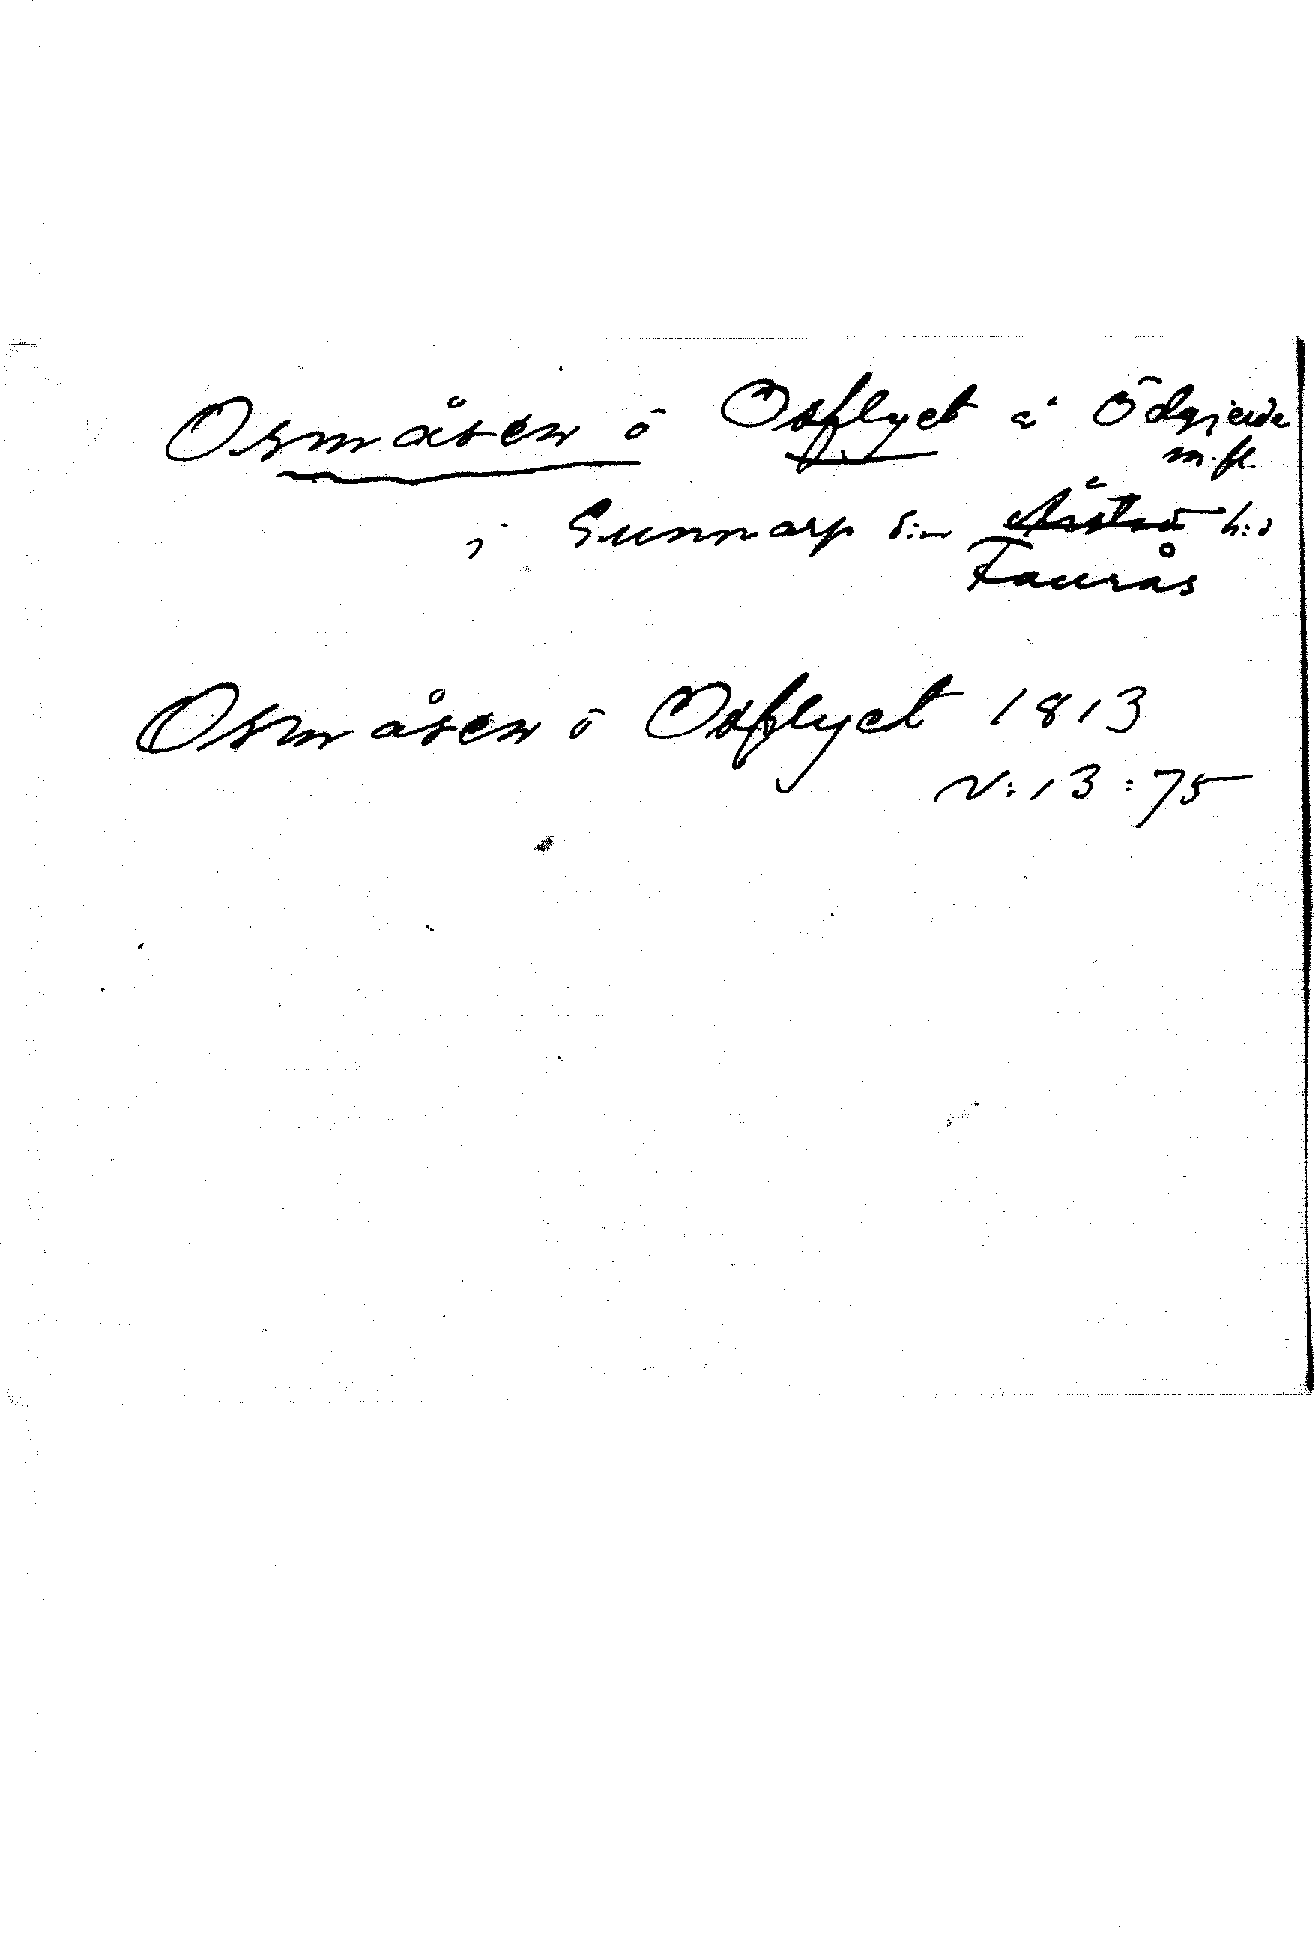 Osmåsen ö Osflyet å Ödgierde
m. fl.
i Gunnarp s:n Årstad h:d
Faurås
Osmåsen ö Osflyet 1813
N:13:75